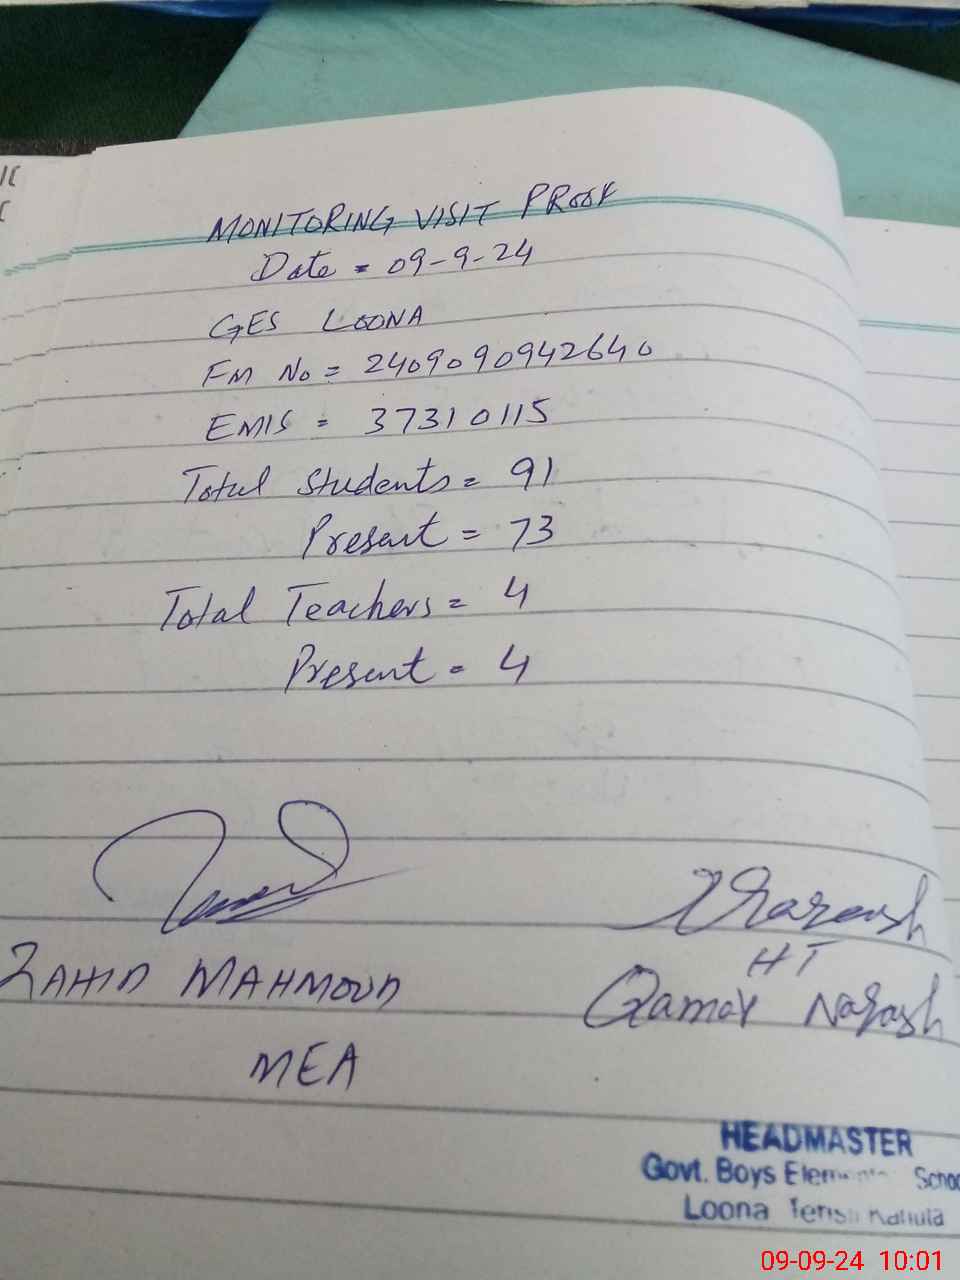 MONITORING VISIT PROOF
Date = 09-9-24
GES LOONA
FM No = 2409090942640
EMIS = 37310115
Total Students = 91
Present = 73
Total Teachers = 4
Present = 4
ZAHID MAHMOUD
MEA
HT
Qamar Naqash
HEADMASTER
Govt. Boys
Loona
09-09-24 10:01